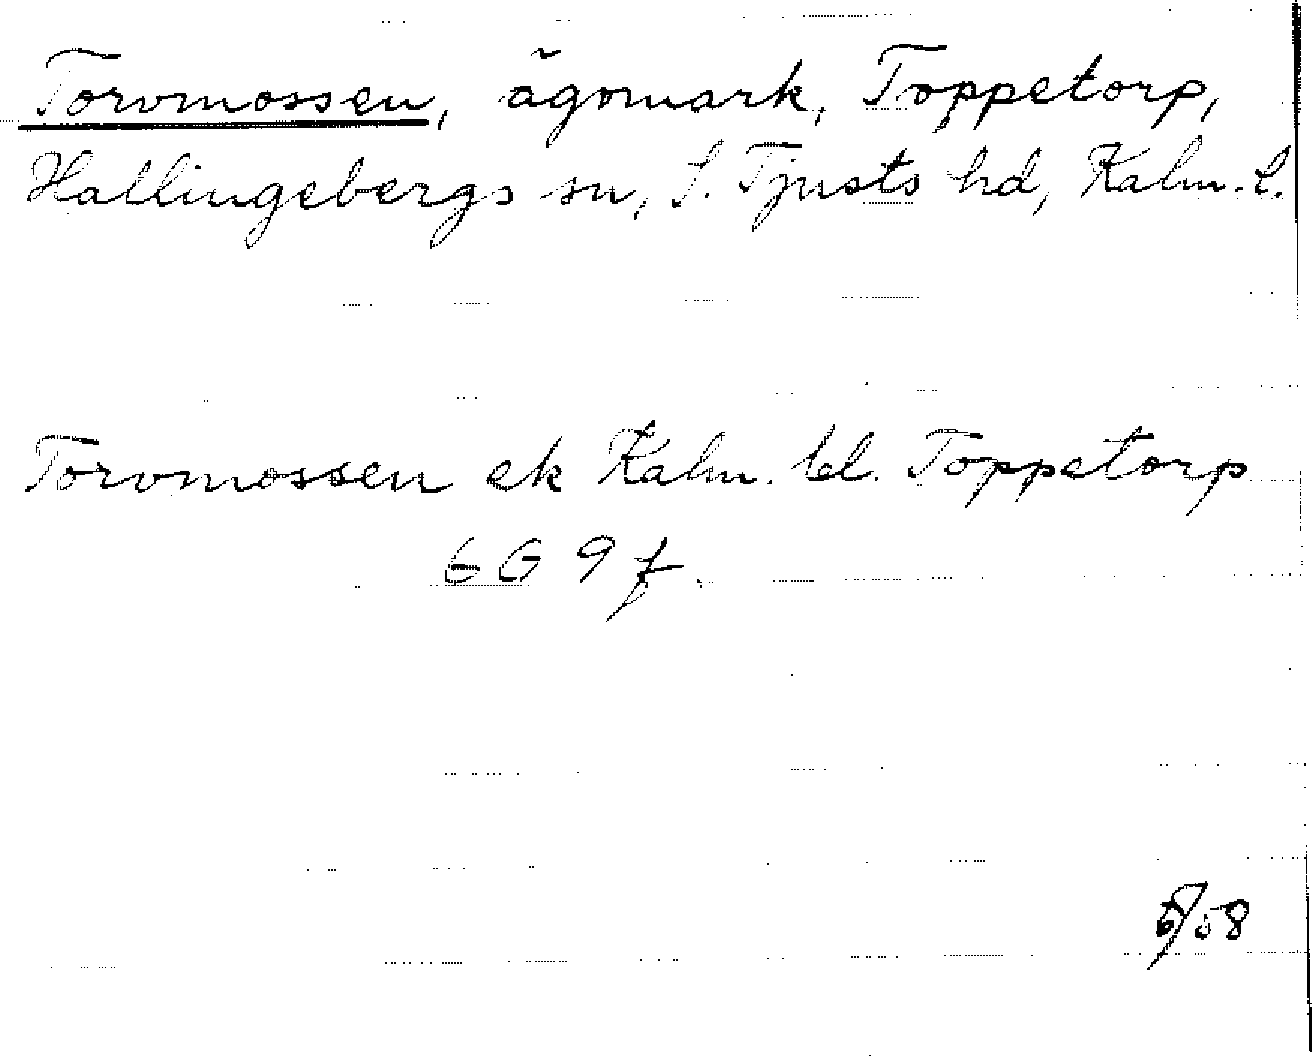 Torvmossen, ägomark, Toppetorp,
Hallingebergs sn, S. Tjusts hd, Kalm. l.
Torvmossen ek Kalm. bl. Toppetorp
6 G 9 f.